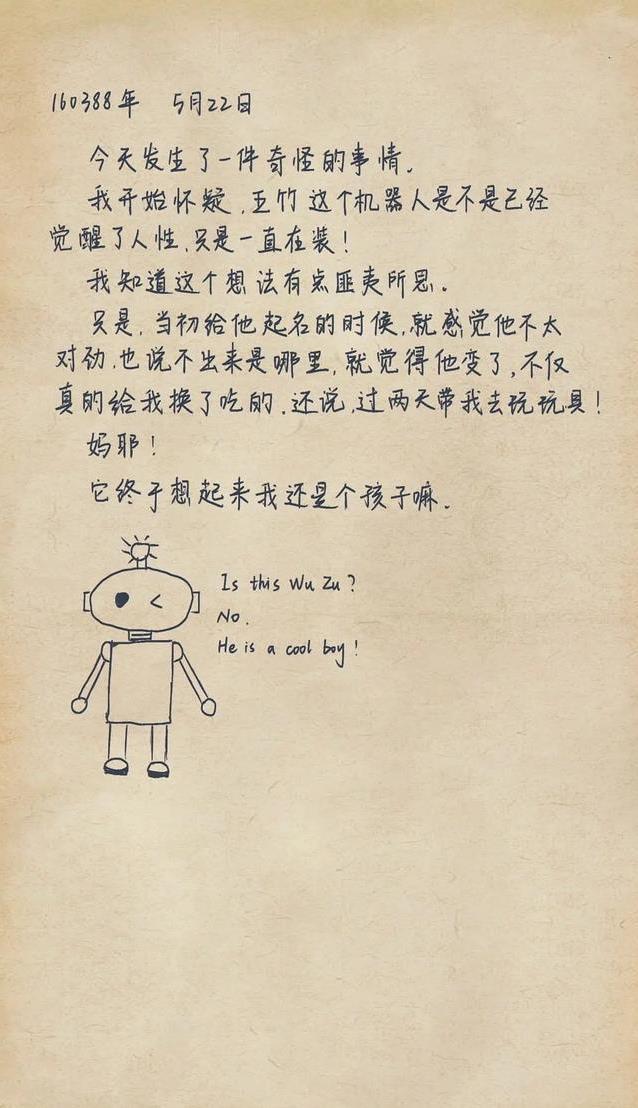 160388年 5月22日
今天发生了一件奇怪的事情。
我开始怀疑,五竹这个机器人是不是已经
觉醒了人性,只是一直在装!
我知道这个想法有点匪夷所思。
只是,当初给他起名的时候,就感觉他不太
对劲,也说不出来是哪里,就觉得他变了,不仅
真的给我换了吃的,还说,过两天带我去玩玩具!
妈耶!
它终于想起来我还是个孩子嘛。
Is this Wu Zu?
No.
He is a cool boy!